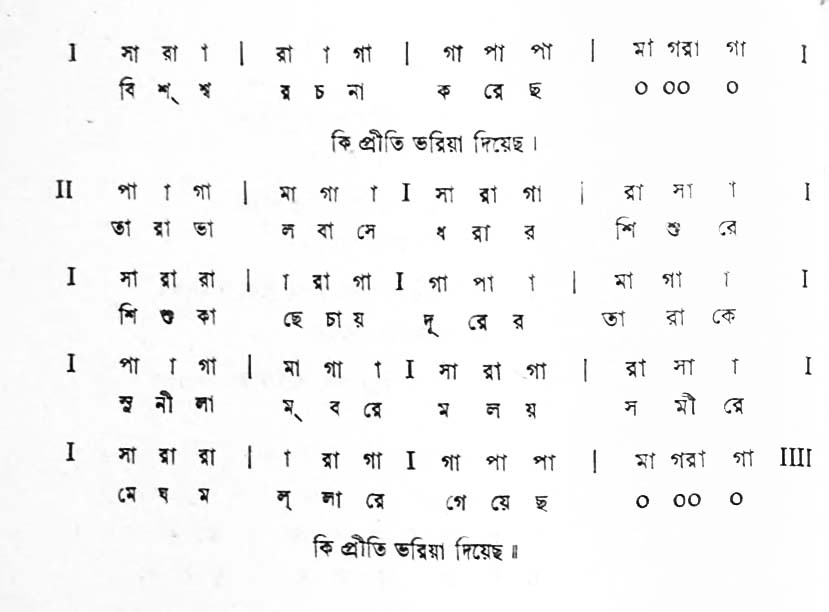 I সা রা া | রা া গা | গা পা পা | মা গরা গা I
বি শ্ ব র চ না ক রে ছ ০ ০০ ০
কি প্রীতি ভরিয়া দিয়েছ।
II পা া গা | মা গা া I সা রা গা | রা সা া I
তা রা ভা ল বা সে ধ রা র শি শু রে
I সা রা রা | া রা গা I গা পা া | মা গা া I
শি শু কা ছে চা য় দূ রে র তা রা কে
I পা া গা | মা গা া I সা রা গা | রা সা া I
সু নী লা ম্ ব রে ম ল য় স মী রে
I সা রা রা | া রা গা I গা পা পা | মা গরা গা IIII
মে ঘ ম ল্ লা রে গে য়ে ছ ০ ০০ ০
কি প্রীতি ভরিয়া দিয়েছ॥